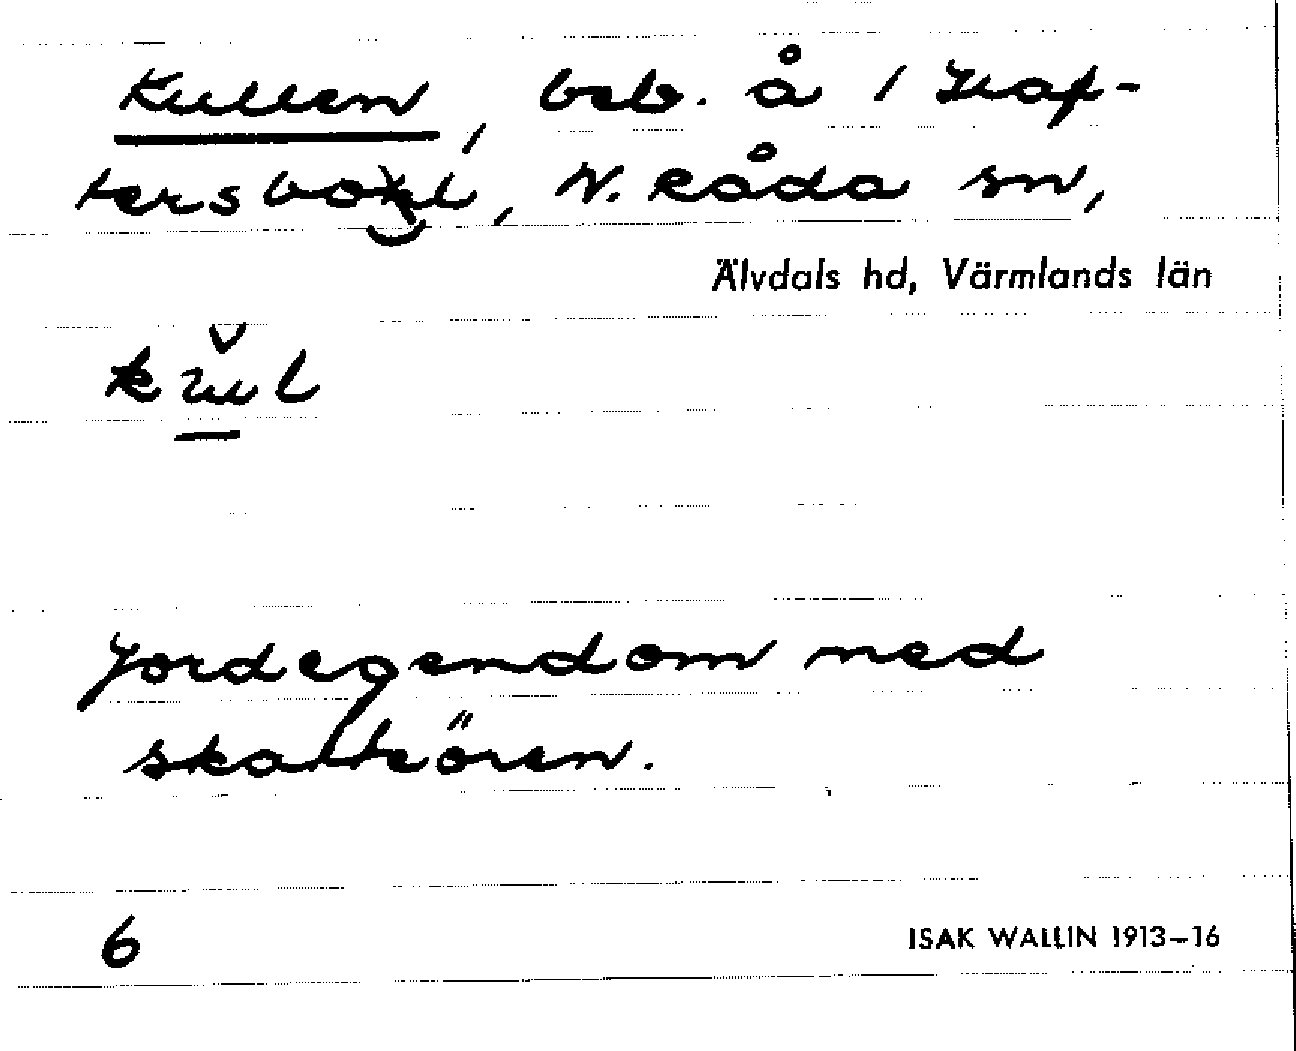 Kullen, beb. å 1
N. Råda sn,
Älvdals hd, Värmlands län
Jordegendom med
skattören.
6 ISAK WALLIN 1913–16